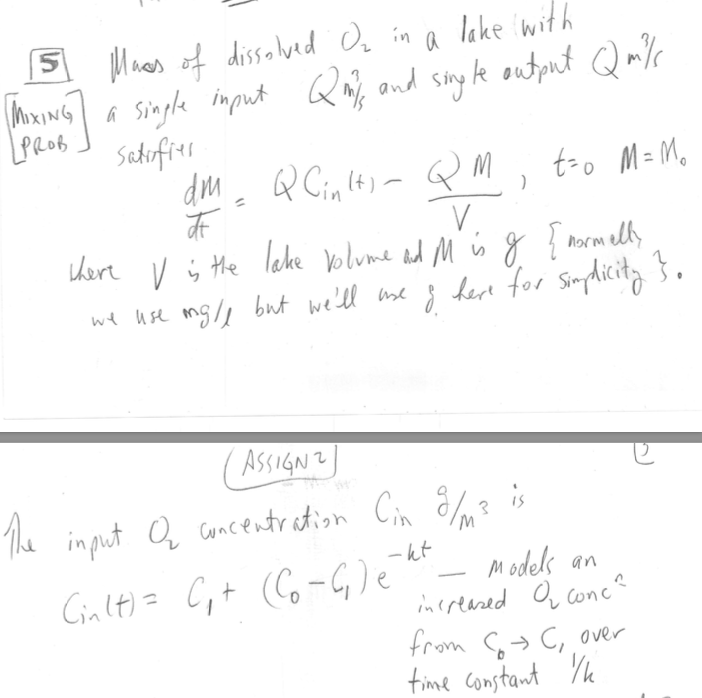 5 Mass of dissolved O₂ in a lake with
[MIXING PROB] a single input Q m³/s and single output Q m³/s
satisfies
dM/dt = Q Cin(t) - QM/V , t=0 M=M₀
where V is the lake volume and M is g {normally
we use mg/l but we'll use g here for simplicity}.
ASSIGN 2
The input O₂ concentration Cin g/m³ is
Cin(t) = C₁ + (C₀ - C₁) e^-kt — Models an
increased O₂ concⁿ
from C₀ → C₁ over
time constant 1/k